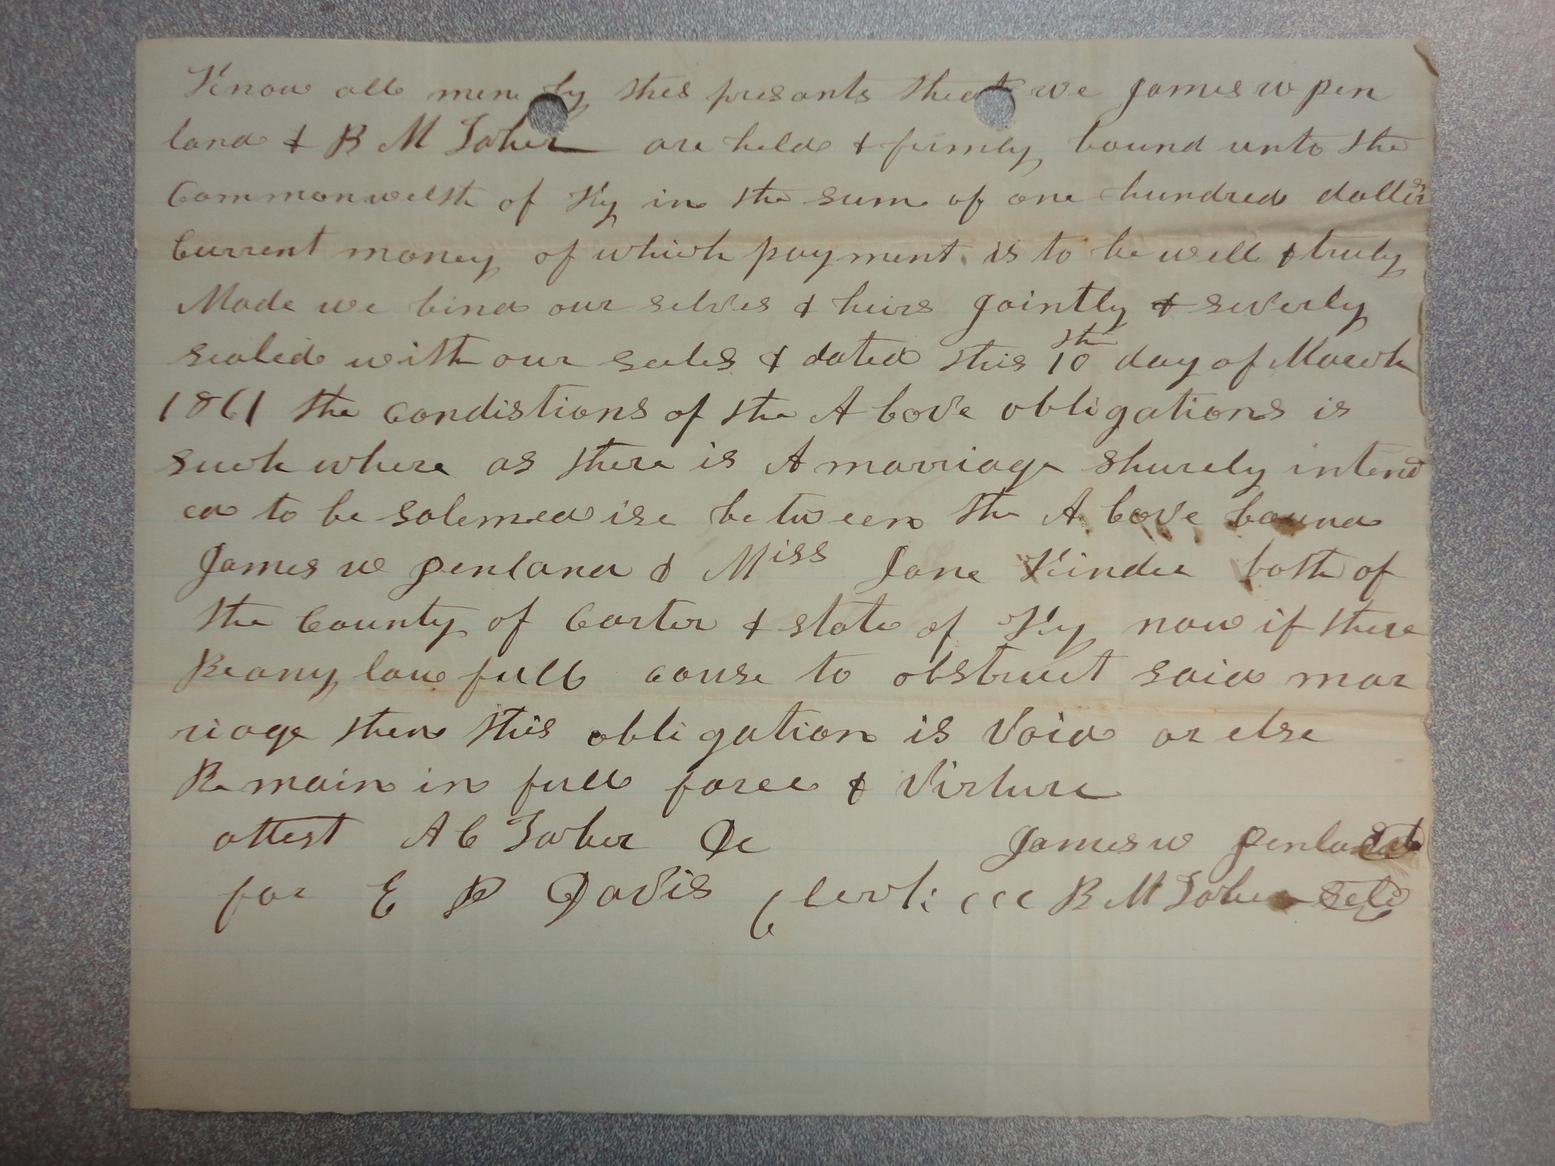 Know all men by thes presants that we James w pen
land & B M Tober are held & firmly bound unto the
Commonwelth of Ky in the sum of one hundred dollers
Current money of which payment is to be well & truly
Made we bind our selves & heirs Jointly & severly
sealed with our seals & dated this 10th day of March
1861 the condistions of the A bove obligations is
such where as there is A marriage shurely intend
ed to be solemedise between the A bove bound
James w penland & Miss Jane Kindee both of
the County of Carter & state of Ky now if there
Be any law full cause to obstruct said mar
riage then this obligation is void or else
Remain in full force & Virture
attest A C Tober Dc James w penland
for E D Davis Clerk ccc B M Tober Sele